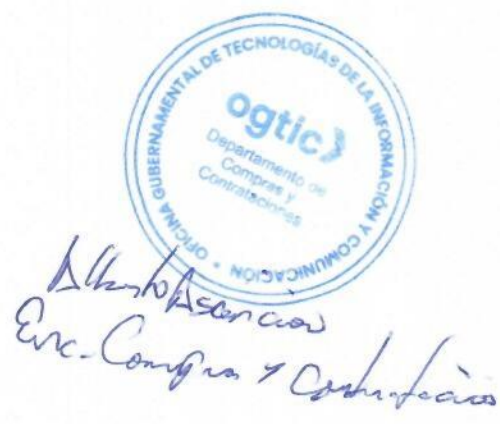 OFICINA GUBERNAMENTAL DE TECNOLOGÍAS DE LA INFORMACIÓN Y COMUNICACIÓN
ogtic
Departamento de
Compras y
Contrataciones
Alberto Asencion
Enc. Compras y Contrataciones